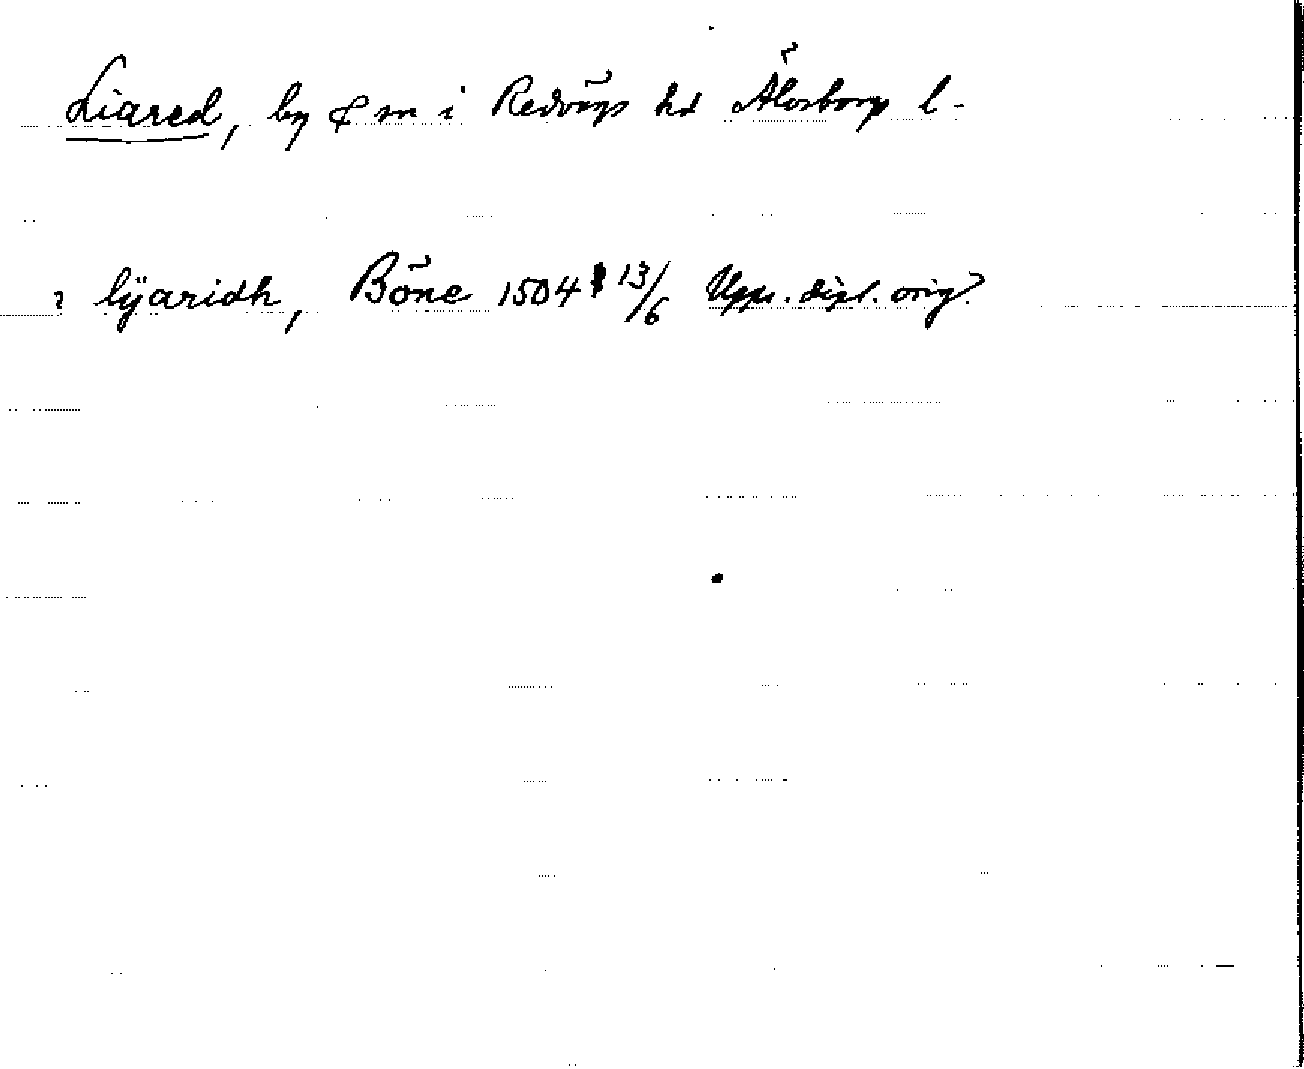 Liared, by & sn i Redvägs hd Älvsborgs l.
i lÿaridh, Böne 1504 13/6 Upps. dipl. orig.